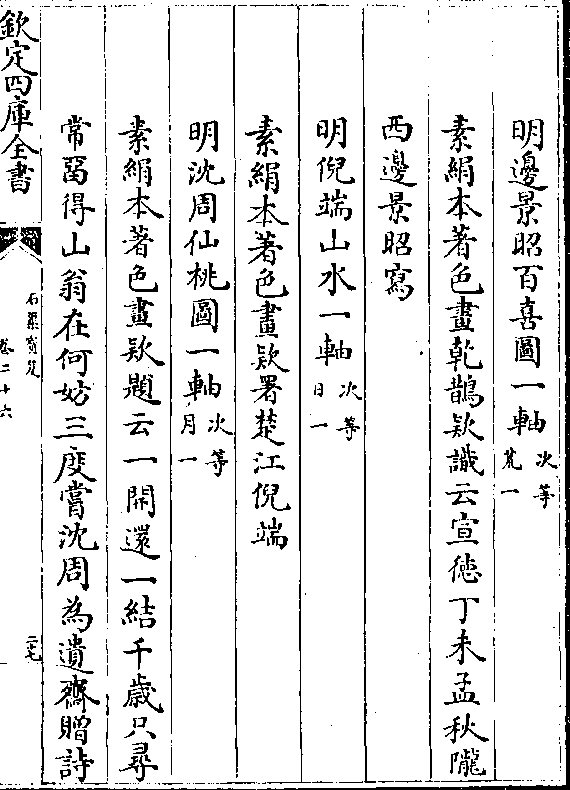 明邊景昭百喜圖一軸次等荒一
素絹本著色畫乾鵲欵識云宣徳丁未孟秋隴
西邊景昭寫
明倪端山水一軸次等日一
素絹本著色畫欵署楚江倪端
明沈周仙桃圖一軸次等月一
素絹本著色畫欵題云一開還一結千歳只尋
常啚得山翁在何妨三度嘗沈周為遺齋贈詩
欽定四庫全書
石渠寳笈
卷二十六